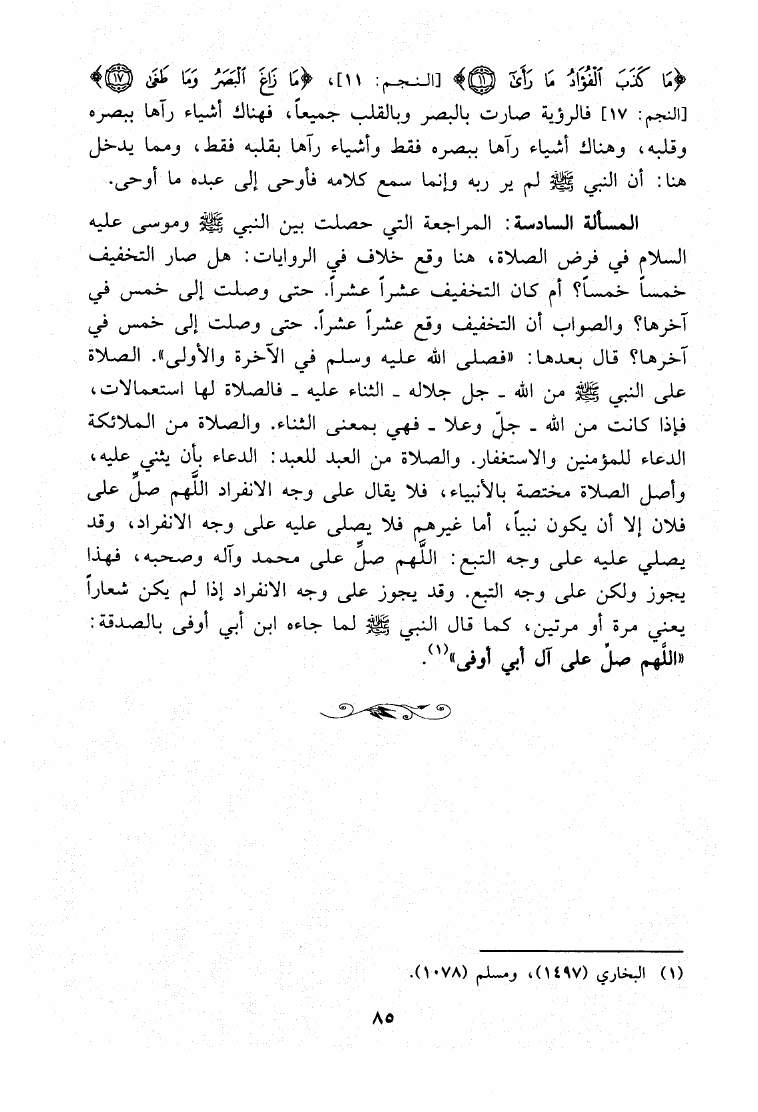 ﴿مَا كَذَبَ ٱلْفُؤَادُ مَا رَأَىٰٓ ﴿١١﴾﴾ [النجم: ١١]، ﴿مَا زَاغَ ٱلْبَصَرُ وَمَا طَغَىٰ ﴿١٧﴾﴾
[النجم: ١٧] فالرؤية صارت بالبصر وبالقلب جميعاً، فهناك أشياء رآها ببصره
وقلبه، وهناك أشياء رآها ببصره فقط وأشياء رآها بقلبه فقط، ومما يدخل
هنا: أن النبي ﷺ لم ير ربه وإنما سمع كلامه فأوحى إلى عبده ما أوحى.
المسألة السادسة: المراجعة التي حصلت بين النبي ﷺ وموسى عليه
السلام في فرض الصلاة، هنا وقع خلاف في الروايات: هل صار التخفيف
خمساً خمساً؟ أم كان التخفيف عشراً عشراً. حتى وصلت إلى خمس في
آخرها؟ والصواب أن التخفيف وقع عشراً عشراً. حتى وصلت إلى خمس في
آخرها؟ قال بعدها: «فصلى الله عليه وسلم في الآخرة والأولى». الصلاة
على النبي ﷺ من الله ـ جل جلاله ـ الثناء عليه ـ فالصلاة لها استعمالات،
فإذا كانت من الله ـ جلّ وعلا ـ فهي بمعنى الثناء. والصلاة من الملائكة
الدعاء للمؤمنين والاستغفار. والصلاة من العبد للعبد: الدعاء بأن يثني عليه،
وأصل الصلاة مختصة بالأنبياء، فلا يقال على وجه الانفراد اللَّهم صلِّ على
فلان إلا أن يكون نبياً، أما غيرهم فلا يصلى عليه على وجه الانفراد، وقد
يصلي عليه على وجه التبع: اللَّهم صلِّ على محمد وآله وصحبه، فهذا
يجوز ولكن على وجه التبع. وقد يجوز على وجه الانفراد إذا لم يكن شعاراً
يعني مرة أو مرتين، كما قال النبي ﷺ لما جاءه ابن أبي أوفى بالصدقة:
«اللَّهم صلِّ على آل أبي أوفى»(١).
(١) البخاري (١٤٩٧)، ومسلم (١٠٧٨).
٨٥